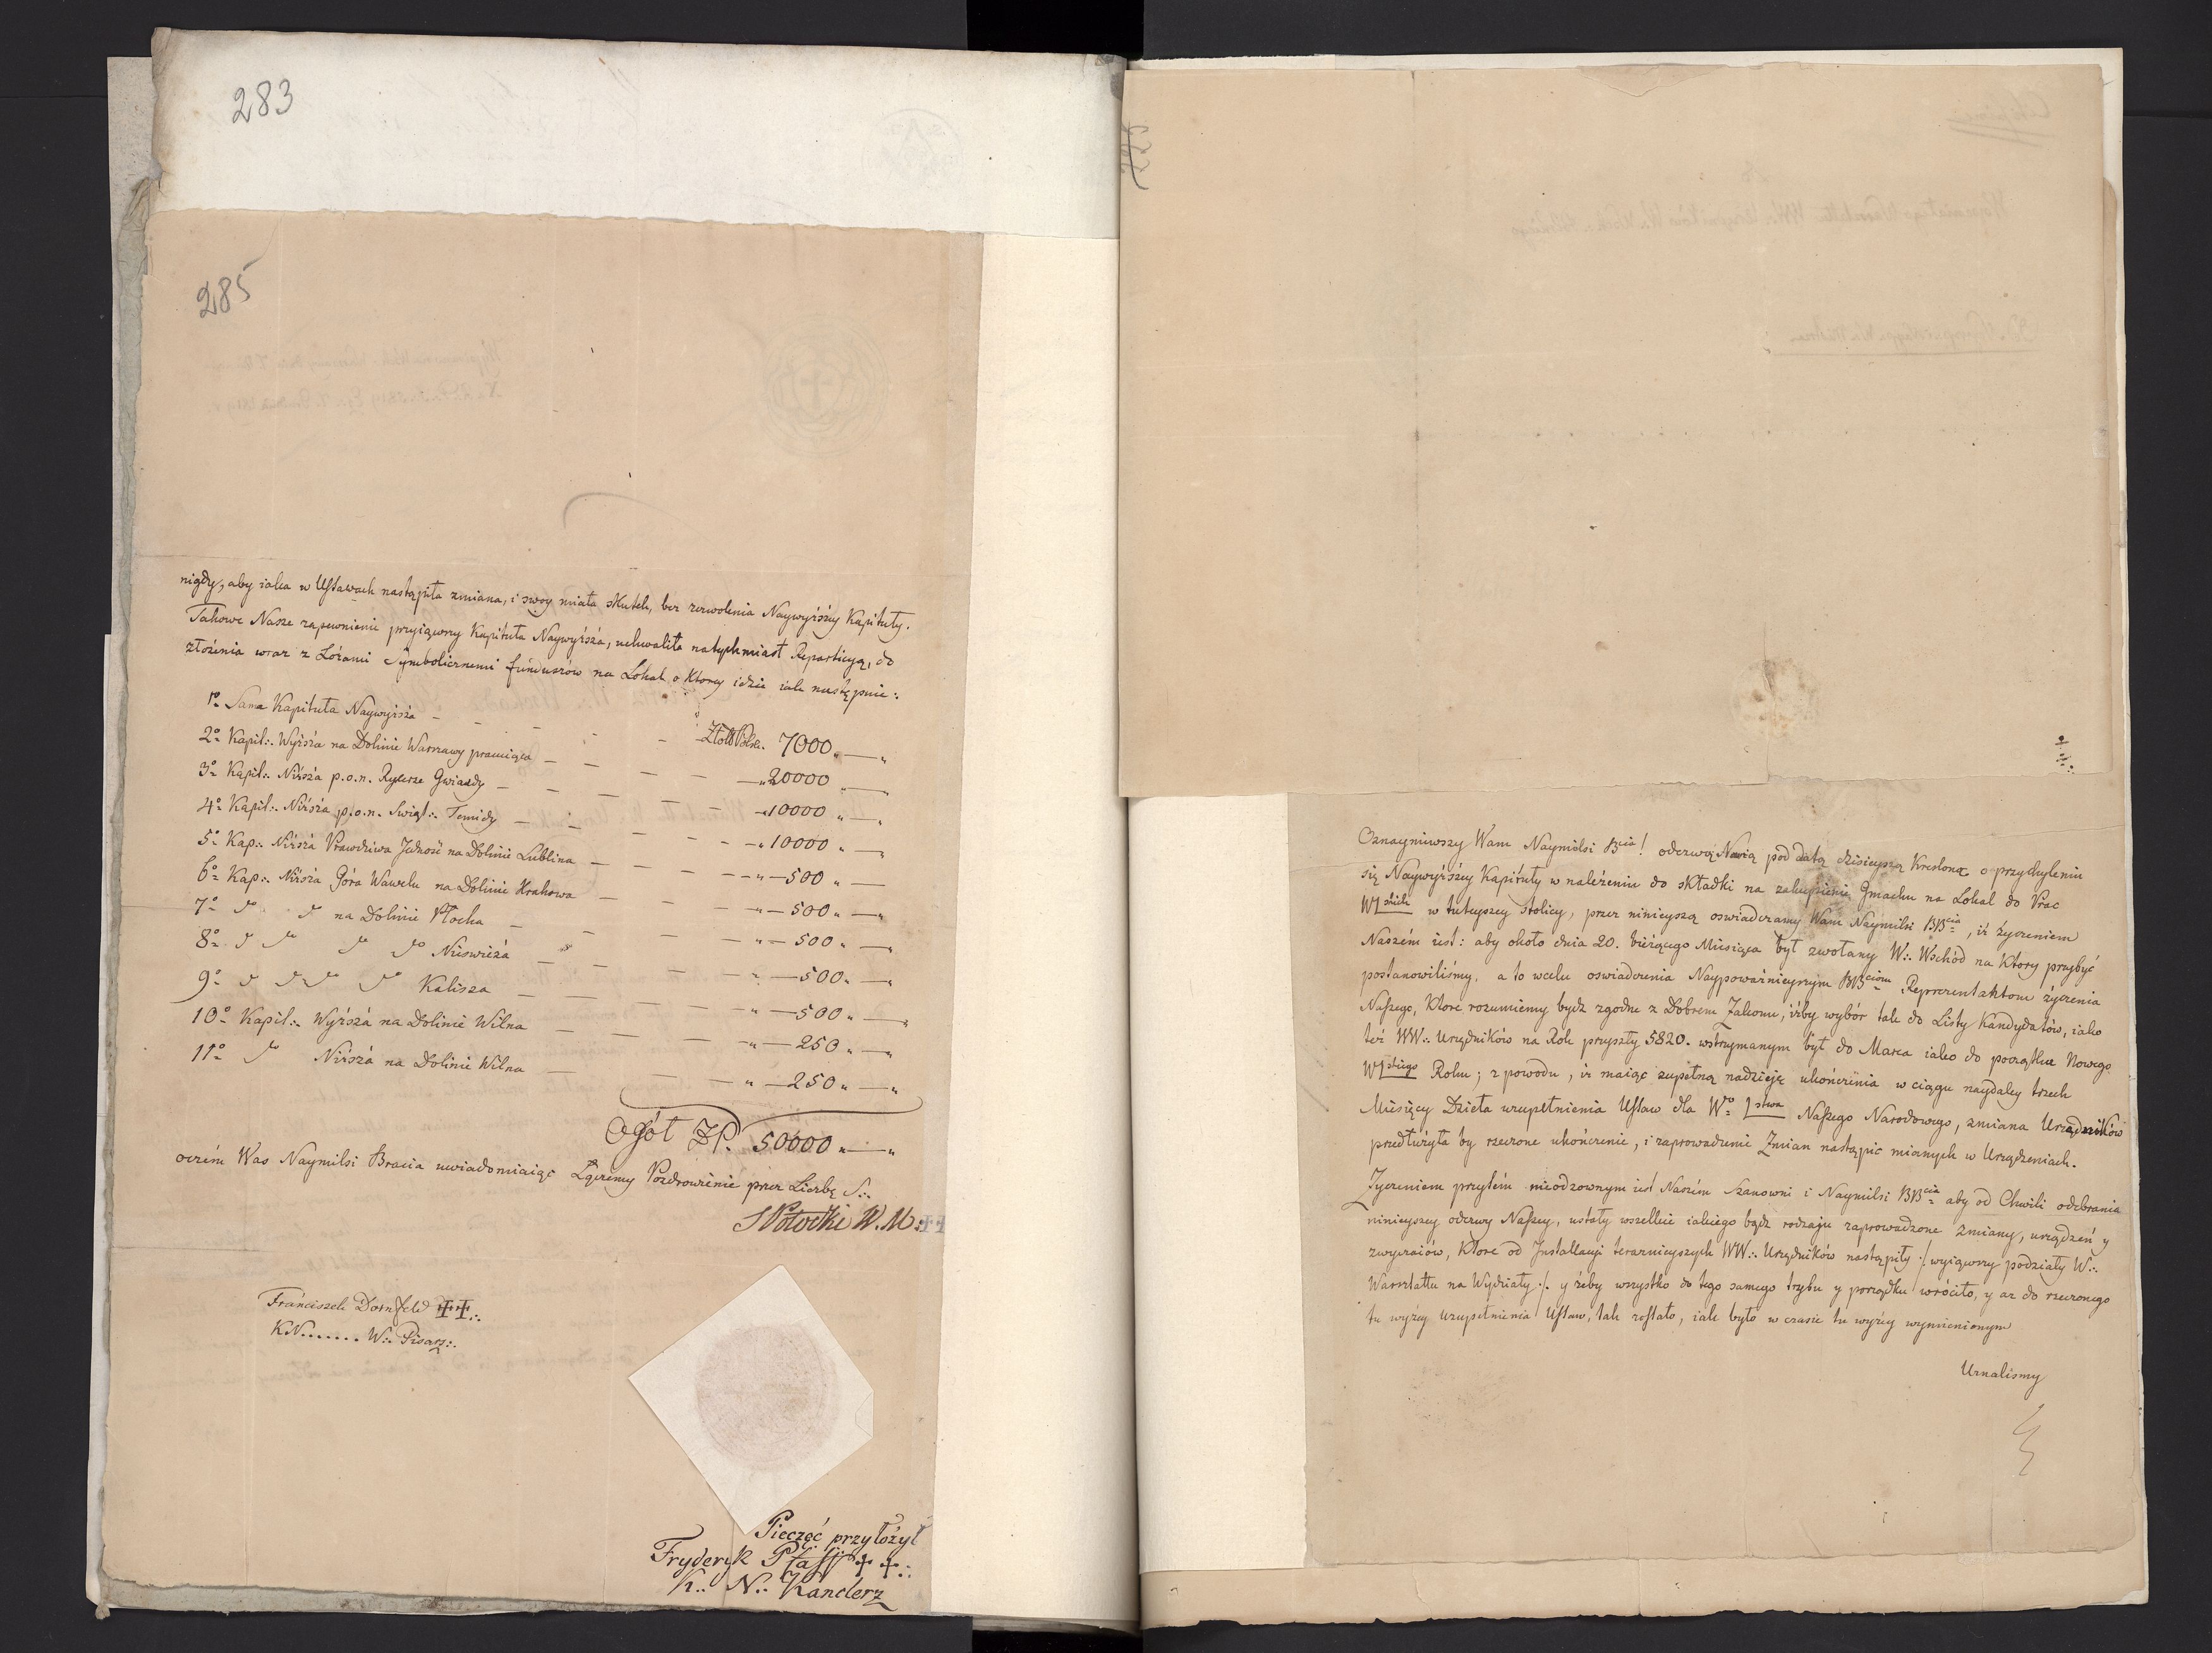 283
285
nigdy, aby iaka w Ustawach nastąpiła zmiana, i swoy miała skutek, bez zezwolenia Naywyższey Kapituły.
Takowe Nasze zapewnienie przyiąwszy Kapituła Naywyższa, uchwaliła natychmiast Repartycyą, do
złożenia wraz z Lożami Symbolicznemi funduszów na Lokal o ktory idzie iak następnie:
1º Sama Kapituła Naywyższa — — — Złott Polsk. 7000 „ — „
2º Kapit:. Wyższa na Dolinie Warszawy pracuiąca — — — — „ 20000 „ — „
3º Kapit:. Niższa p.o.n. Rycerze Gwiazdy — — — — — „ 10000 „ — „
4º Kapit:. Niższa p.o.n. Swiąt:. Temidy — — — — — „ 10000 „ — „
5º Kap:. Niższa Prawdziwa Jedność na Dolinie Lublina — — — „ — 500 „ —
6º Kap:. Niższa Góra Wawelu na Dolinie Krakowa — — — „ — 500 „ — „
7º d d na Dolinie Płocka — — — — „ — 500 „ — „
8º d d d d Nieswieża — — — — „ — 500 „ — „
9º d d d d Kalisza — — — — „ — 500 „ — „
10º Kapit:. Wyższa na Dolinie Wilna — — — „ — 250 „ — „
11º d Niższa na Dolinie Wilna — — — „ — 250 „ — „
Ogół ZP. 50000 „ — „
oczém Was Naymilsi Bracia uwiadomiaiąc Łączemy Pozdrowienie przez Liczbę S:.
S Potocki W. M:.
Franciszek Dornfeld ‡‡:.
KN....... W:. Pisarz:.
Pieczęć przyłożył
Fryderyk Pfaff ‡ ‡:.
K:. N:. Kanclerz
Oznaymiwszy Wam Naymilsi Bcia! odezwą Naszą pod datą dzisieyszą kresloną o przychyleniu
się Naywyższey Kapituły w należeniu do składki na zakupienie Gmachu na Lokal do Prac
w tuteyszey stolicy, przez ninieyszą oswiadczamy Wam Naymilsi BBcia, iż życzeniem
Naszém iest: aby około dnia 20. bieżącego Miesiąca był zwołany W:. Wschód na ktory przybyć
postanowiliśmy, a to wcelu oswiadczenia Naypoważnieyszym BBciom Reprezentantom życzenia
Naszego, które rozumiemy bydz zgodne z Dobrem Zakonu, iżby wybór tak do Listy Kandydatów, iako
też WW:. Urzędników na Rok przyszły 5820. wstrzymanym był do Marca iako do początku Nowego
Roku; z powodu, iż maiąc zupełną nadzieję ukończenia w ciągu naydaley trzech
Miesięcy Dzieła uzupełnienia Ustaw dla Wº Naszego Narodowego, zmiana Urzędników
przedłużyła by rzeczone ukończenie, i zaprowadzenie Zmian nastąpić mianych w Urządzeniach.
Zyczeniem przytém nieodzownym iest Naszém Szanowni i Naymilsi BBcia aby od Chwili odebrania
ninieyszey odezwy Naszey, ustały wszelkie iakiego bądz rodzaju zaprowadzone zmiany, urządzeń y
zwyczaiów, które od Jnstallacyi teraznieyszych WW:. Urzędników nastąpiły :/ wyiąwszy podziały W:.
Warsztattu na Wydziały /: y żeby wszystko do tego samego trybu y porządku wróciło, y az do rzeczonego
tu wyżey uzupełnienia Ustaw, tak zostało, iak było w czasie tu wyżey wymienionym
Uznalismy